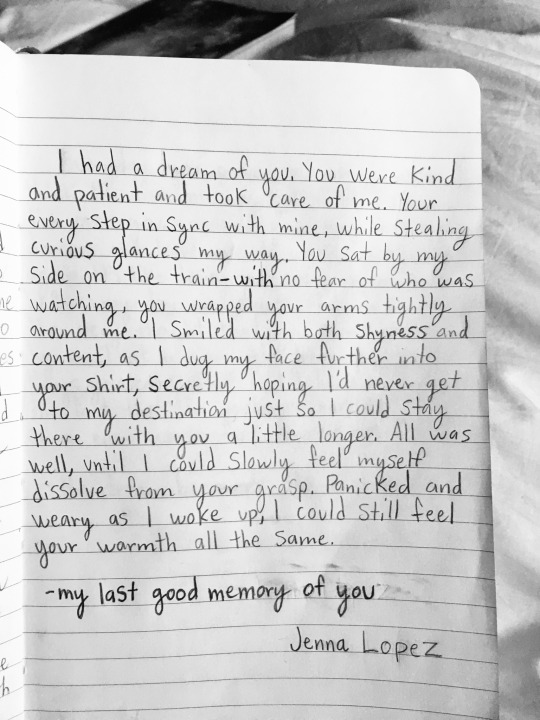 I had a dream of you. You were kind
and patient and took care of me. Your
every step in sync with mine, while stealing
curious glances my way. You sat by my
side on the train-with no fear of who was
watching, you wrapped your arms tightly
around me. I smiled with both shyness and
content, as I dug my face further into
your shirt, secretly hoping I'd never get
to my destination just so I could stay
there with you a little longer. All was
well, until I could slowly feel myself
dissolve from your grasp. Panicked and
weary as I woke up, I could still feel
your warmth all the same.
-my last good memory of you
Jenna Lopez